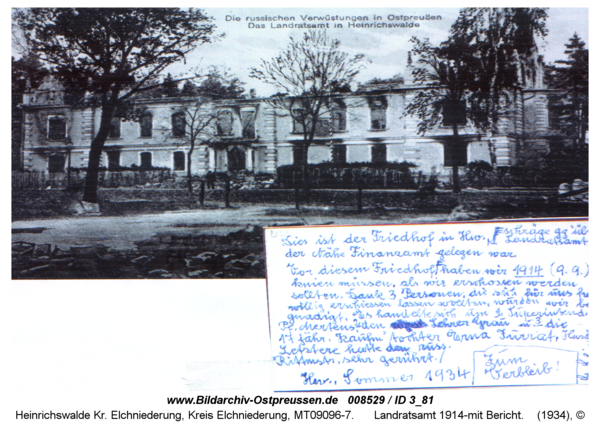 Die russischen Verwüstungen in Ostpreußen
Das Landratsamt in Heinrichswalde
Dies ist der Friedhof in Hw.,
schräge gg üb
Landratsamt
der Nähe Finanzamt gelegen war.
Vor diesem Friedhof haben wir 1914 (9. 9.)
knien müssen, als wir erschossen werden
sollten. Dank 3 Personen, die sich für uns
erschiessen lassen wollten, wurden wir be
gnadigt. Es handelte sich um 1. Superintend.
den Lehrer u. 3. die
17 jähr. Tochter Erna
Letztere hatte den russ.
Rittmstr. sehr gerührt!
Hw., Sommer 1934
Zum
Verbleib!
www.Bildarchiv-Ostpreussen.de 008529 / ID 3_81
Heinrichswalde Kr. Elchniederung, Kreis Elchniederung, MT09096-7. Landratsamt 1914-mit Bericht. (1934), ©